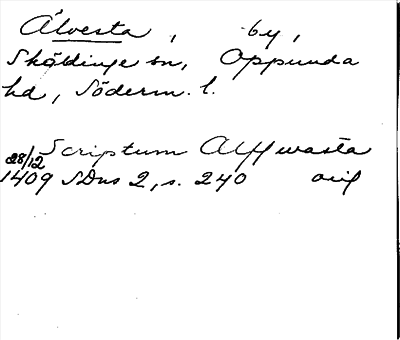 Älvesta, by,
Sköldinge sn, Oppunda
hd, Söderm. l.
Scriptum Alffwasta
28/12
1409 SDns 2, s. 240 orig